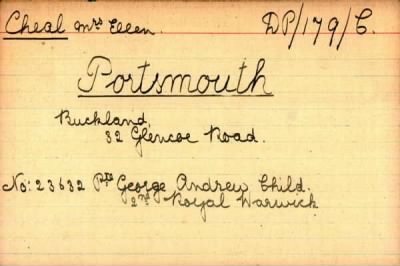 Cheal Mrs Ellen. DP/179/C.
Portsmouth
Buckland,
32 Glencoe Road.
No: 23632 Pte George Andrew Child.
2nd Royal Warwick